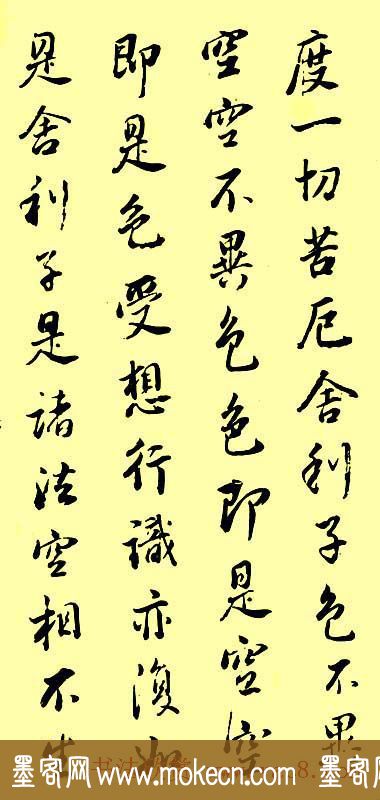 度一切苦厄舍利子色不異
空空不異色色即是空空
即是色受想行識亦復如
是舍利子是諸法空相不生
墨客网 www.mokecn.com 墨客网